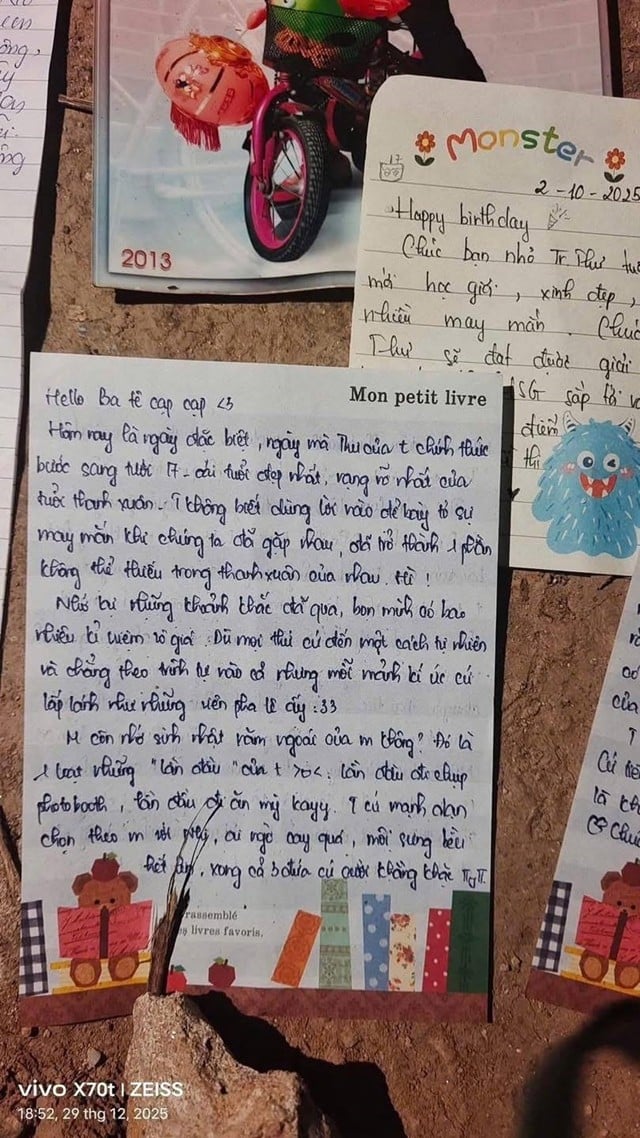 2013
Monster
17
2-10-2025
Happy birthday
Chúc bạn nhỏ Tr.Thư tuổi
mới học giỏi, xinh đẹp,
nhiều may mắn. Chúc
Thư sẽ đạt được giải
HSG sắp tới
điểm
thi
Mon petit livre
Hello Ba tê cạp cạp <3
Hôm nay là ngày đặc biệt, ngày mà Thư của t chính thức
bước sang tuổi 17 - cái tuổi đẹp nhất, rạng rỡ nhất của
tuổi thanh xuân. T không biết dùng lời nào để bày tỏ sự
may mắn khi chúng ta đã gặp nhau, đã trở thành 1 phần
không thể thiếu trong thanh xuân của nhau. Hì!
Nhớ lại những khoảnh khắc đã qua, bọn mình có bao
nhiêu kỉ niệm vô giá. Dù mọi thứ cứ đến một cách tự nhiên
và chẳng theo trình tự nào cả nhưng mỗi mảnh kí ức cứ
lấp lánh như những viên pha lê ấy :33
M còn nhớ sinh nhật năm ngoái của m không? Đó là
1 loạt những "lần đầu" của t >o<. lần đầu đi chụp
photobooth, lần đầu đi ăn mỳ kayy. T cứ mạnh dạn
chọn theo m ai ngờ cay quá, môi sưng lều
hết ăn, xong cả 3 đứa cứ cười không khác
rassemblé
s livres favoris.
của
T
Cú
là
Chúc
vivo X70t | ZEISS
18:52, 29 thg 12, 2025